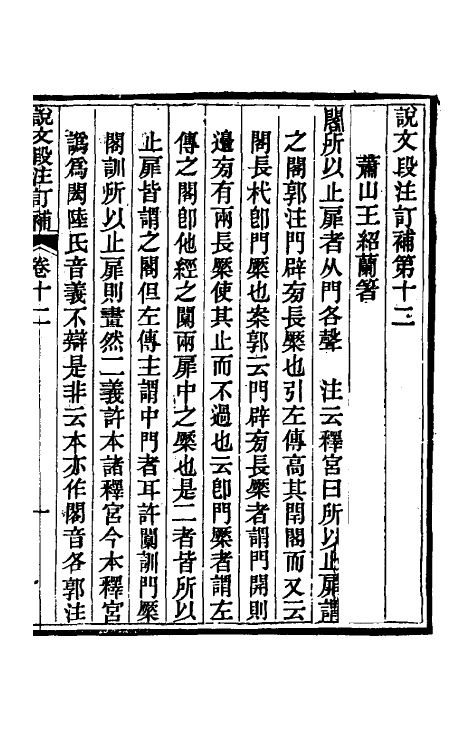 說文段注訂補第十二
蕭山王紹蘭箸
閣所以止扉者从門各聲　注云釋宮曰所以止扉謂
之閣郭注門辟㫄長橜也引左傳高其閈閣而又云
閣長杙卽門橜也案郭云門辟㫄長橜者謂門開則
邊㫄有兩長橜使其止而不過也云卽門橜者謂左
傳之閣卽他經之闑兩扉中之橜也是二者皆所以
止扉皆謂之閣但左傳主謂中門者耳許闑訓門橜
閣訓所以止扉則畫然二義許本諸釋宮今本釋宮
譌爲閎陸氏音義不辯是非云本亦作閣音各郭注
說文段注訂補
卷十二
一